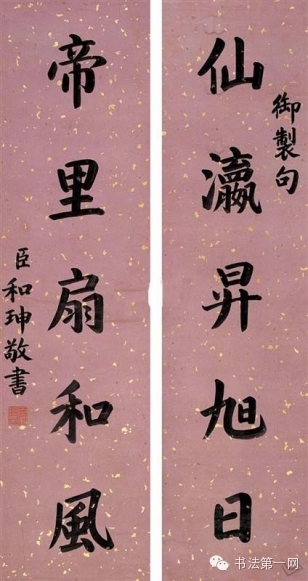 御製句
仙瀛昇旭日
帝里扇和風
臣和珅敬書
书法第一网